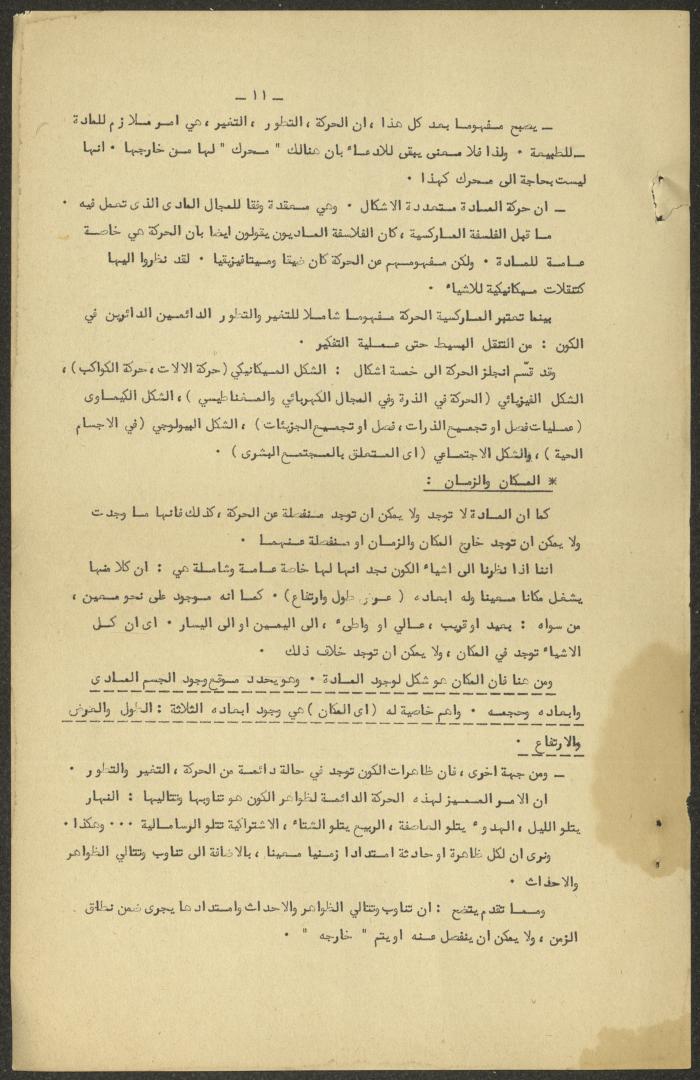 ــ ١١ ــ
ــ يصبح مفهوما بعد كل هذا ، ان الحركة ، التطور ، التغير ، هي امر ملازم للمادة
ــ للطبيعة ٠ ولذا فلا معنى يبقى للادعاء بان هنالك " محرك " لها من خارجها ٠ انها
ليست بحاجة الى محرك كهذا ٠
ــ ان حركة المادة متعددة الاشكال ٠ وهي معقدة وفقا للمجال المادى الذى تعمل فيه ٠
ما قبل الفلسفة الماركسية ، كان الفلاسفة الماديون يقولون ايضا بان الحركة هي خاصة
عامة للمادة ٠ ولكن مفهومهم عن الحركة كان ضيقا وميتافيزيقيا ٠ لقد نظروا اليها
كتنقلات ميكانيكية للاشياء ٠
بينما تعتبر الماركسية الحركة مفهوما شاملا للتغير والتطور الدائمين الدائرين في
الكون : من التنقل البسيط حتى عملية التفكير ٠
وقد قسّم انجلز الحركة الى خمسة اشكال : الشكل الميكانيكي (حركة الالات ، حركة الكواكب) ،
الشكل الفيزيائي (الحركة في الذرة وفي المجال الكهربائي والمغناطيسي ) ، الشكل الكيماوى
(عمليات فصل او تجميع الذرات ، فصل او تجميع الجزيئات) ، الشكل البيولوجي (في الاجسام
الحية ) ، والشكل الاجتماعي (اى المتعلق بالمجتمع البشرى ) ٠
* المكان والزمان :
كما ان المادة لا توجد ولا يمكن ان توجد منفصلة عن الحركة ، كذلك فانها ما وجدت
ولا يمكن ان توجد خارج المكان والزمان او منفصلة عنهما ٠
اننا اذا نظرنا الى اشياء الكون نجد انها لها خاصة عامة وشاملة هي : ان كلا منها
يشغل مكانا معينا وله ابعاده ( عرض طول وارتفاع) ٠ كما انه موجود على نحو معين ،
من سواه : بعيد او قريب ، عالي او واطيء ، الى اليمين او الى اليسار ٠ اى ان كل
الاشياء توجد في المكان ، ولا يمكن ان توجد خلاف ذلك ٠
ومن هنا فان المكان هو شكل لوجود المادة ٠ وهو يحدد موقع وجود الجسم المادى
وابعاده وحجمه ٠ واهم خاصية له (اى المكان ) هي وجود ابعاده الثلاثة : الطول والعرض
والارتفاع ٠
ــ ومن جهة اخرى ، فان ظاهرات الكون توجد في حالة دائمة من الحركة ، التغير والتطور ٠
ان الامر المميز لهذه الحركة الدائمة لظواهر الكون هو تناوبها وتتاليها : النهار
يتلو الليل ، الهدوء يتلو العاصفة ، الربيع يتلو الشتاء ، الاشتراكية تتلو الرسامالية ٠٠٠ وهكذا ٠
ونرى ان لكل ظاهرة او حادثة امتدادا زمنيا معينا ، بالاضافة الى تناوب وتتالي الظواهر
والاحداث ٠
ومما تقدم يتضح : ان تناوب وتتالي الظواهر والاحداث وامتدادها يجرى ضمن نطاق
الزمن ، ولا يمكن ان ينفصل عنه او يتم " خارجه " ٠